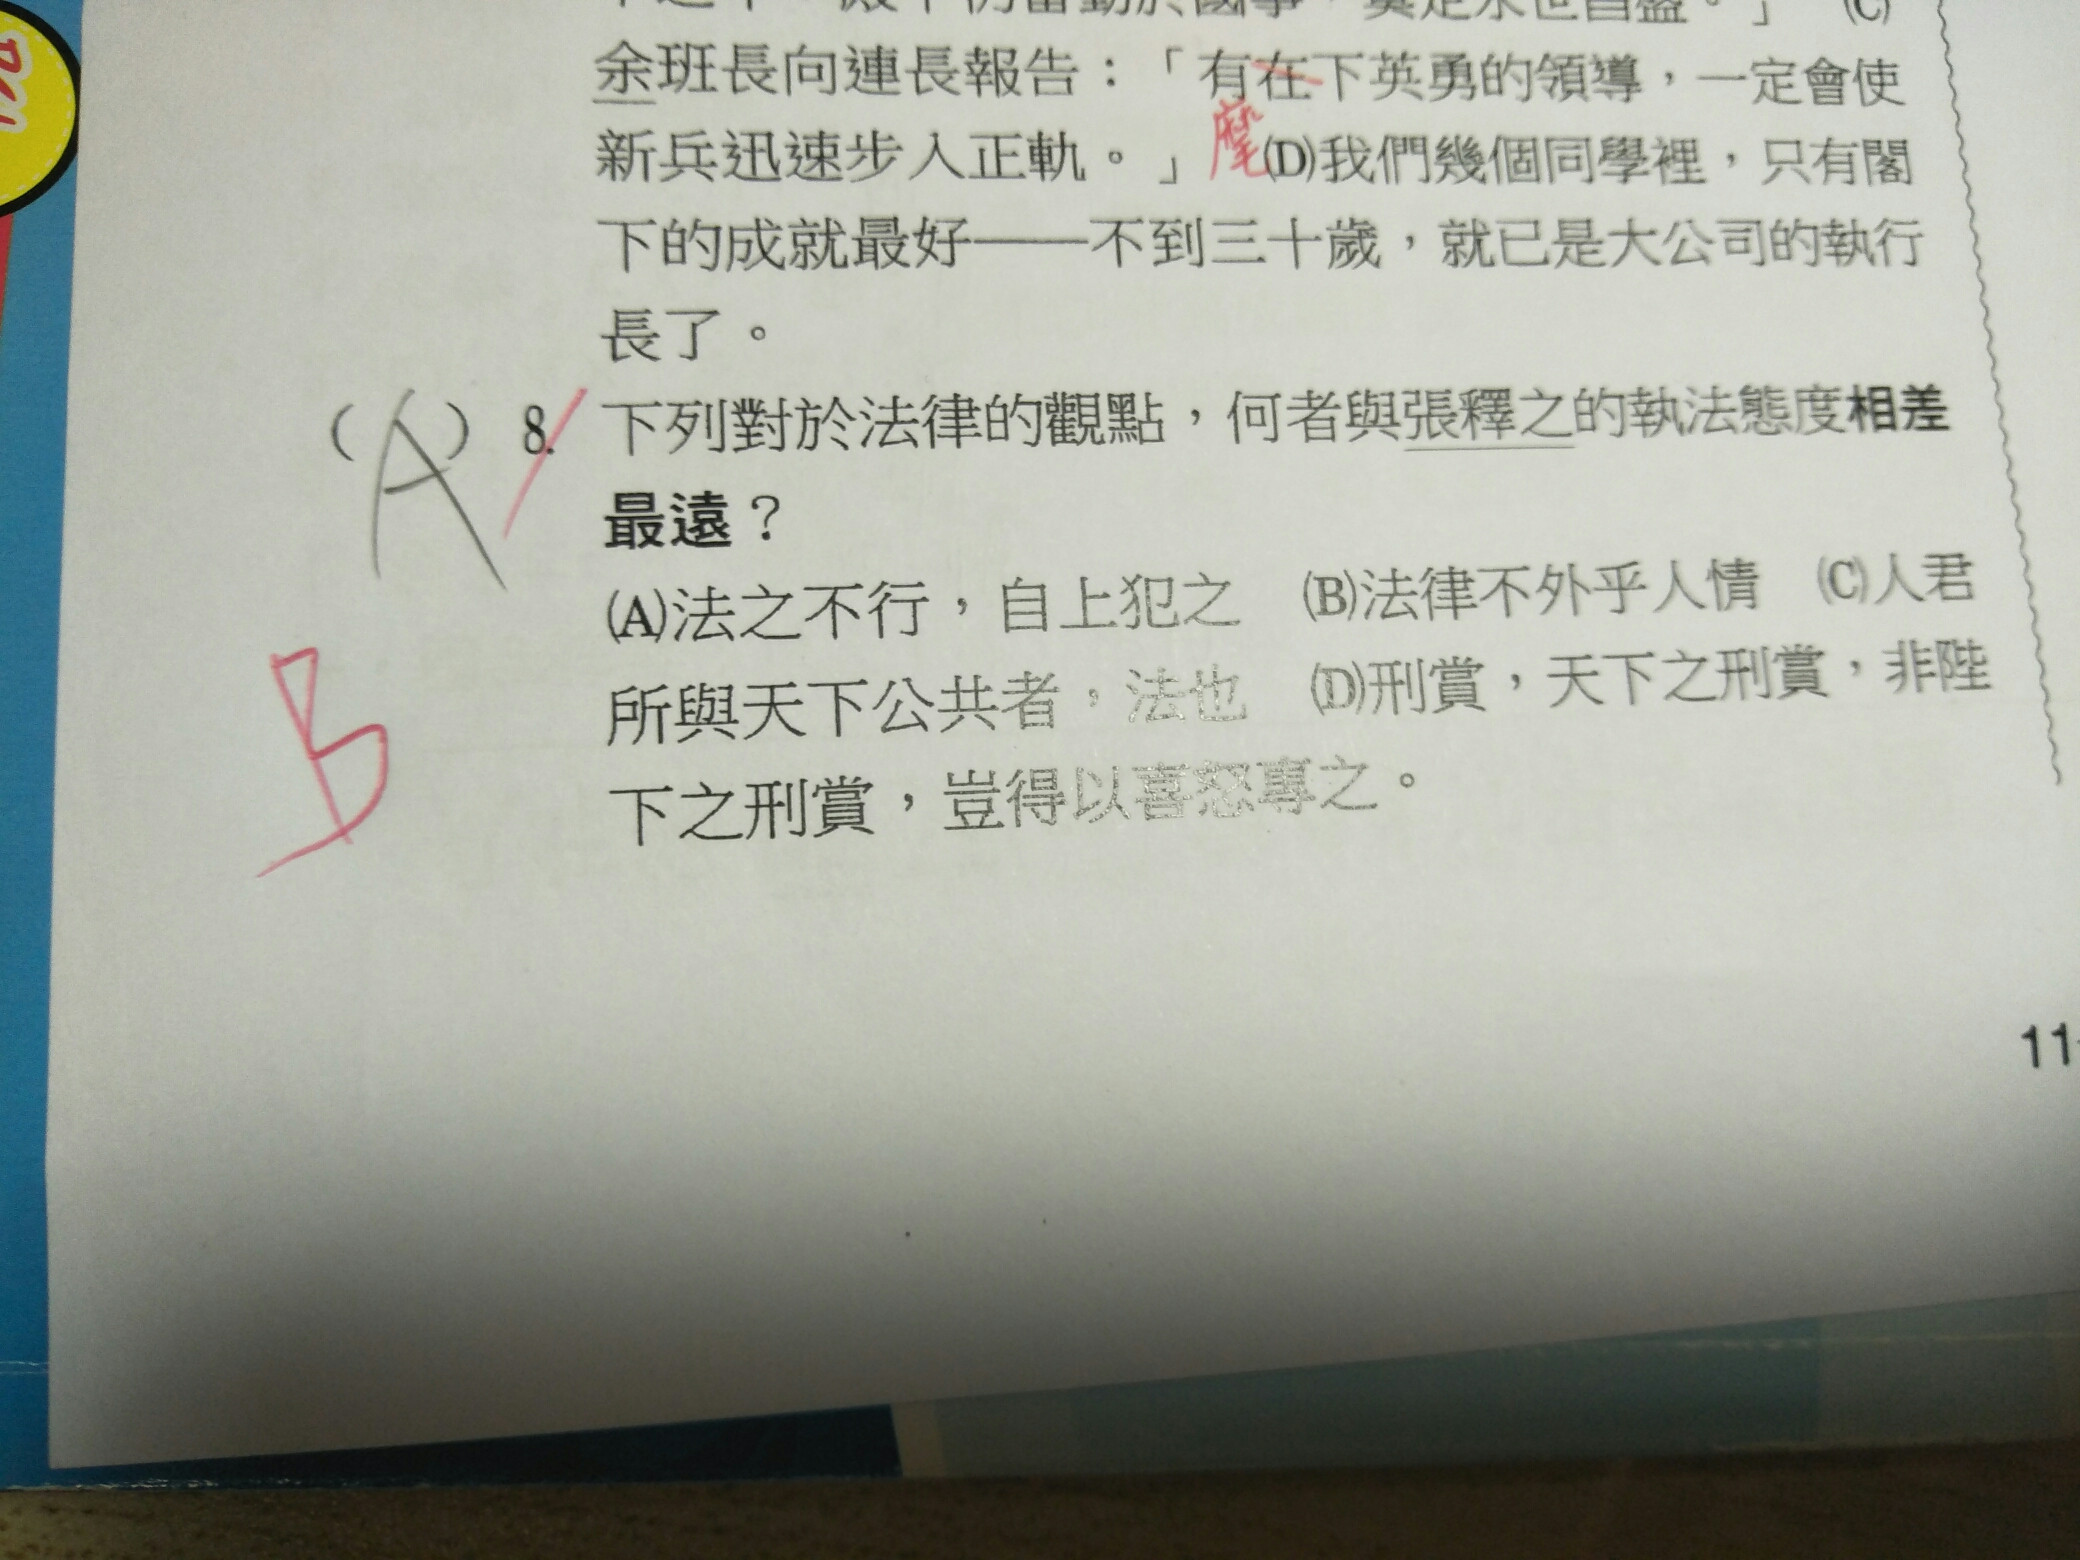 (C)
余班長向連長報告：「有在下英勇的領導，一定會使
新兵迅速步入正軌。」麾(D)我們幾個同學裡，只有閣
下的成就最好——不到三十歲，就已是大公司的執行
長了。
(A) 8. 下列對於法律的觀點，何者與張釋之的執法態度相差
最遠？
(A)法之不行，自上犯之 (B)法律不外乎人情 (C)人君
所與天下公共者，法也 (D)刑賞，天下之刑賞，非陛
下之刑賞，豈得以喜怒專之。
B
11